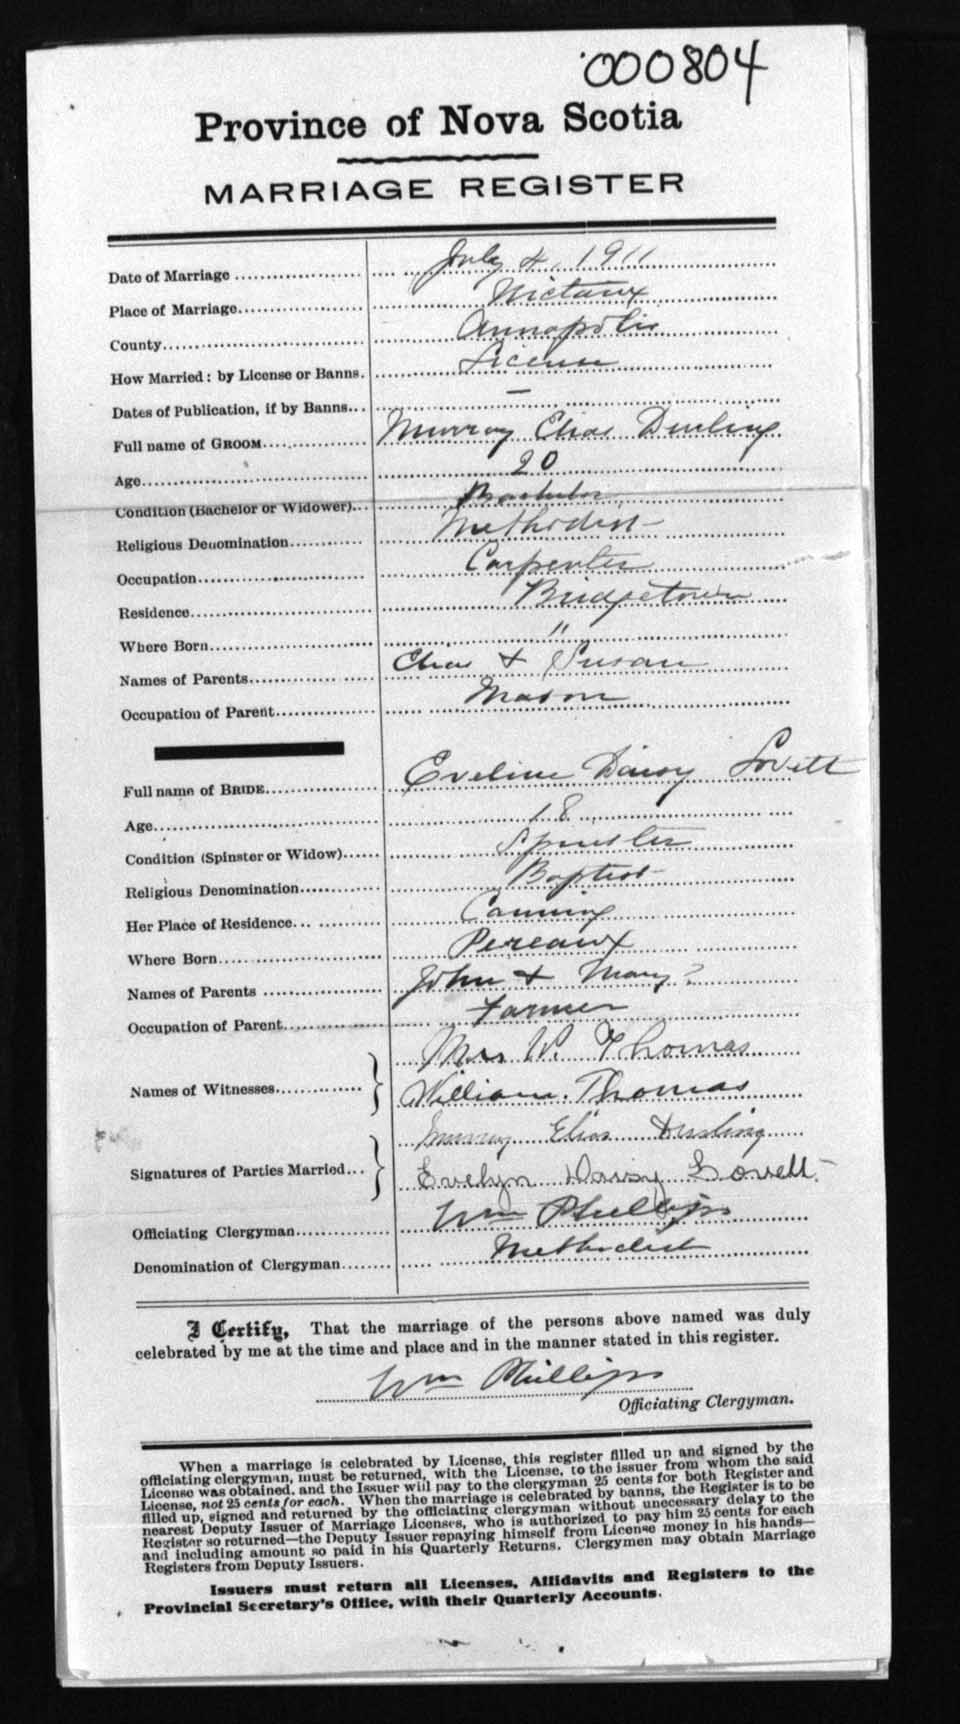 000804
Province of Nova Scotia
MARRIAGE REGISTER
Date of Marriage July 4, 1911
Place of Marriage Nictaux
County Annapolis
How Married: by License or Banns. License
Dates of Publication, if by Banns —
Full name of GROOM Murray Elias Durling
Age 20
Condition (Bachelor or Widower) Bachelor
Religious Denomination Methodist
Occupation Carpenter
Residence Bridgetown
Where Born "
Names of Parents Elias & Susan
Occupation of Parent Mason
Full name of BRIDE Eveline Daisy Lovett
Age 18
Condition (Spinster or Widow) Spinster
Religious Denomination Baptist
Her Place of Residence Canning
Where Born Pereaux
Names of Parents John & Mary?
Occupation of Parent Farmer
Names of Witnesses Mrs W. Thomas
William Thomas
Signatures of Parties Married Murray Elias Durling
Evelyn Daisy Lovett
Officiating Clergyman Wm Phillips
Denomination of Clergyman Methodist
I Certify, That the marriage of the persons above named was duly
celebrated by me at the time and place and in the manner stated in this register.
Wm Phillips
Officiating Clergyman.
When a marriage is celebrated by License, this register filled up and signed by the
officiating clergyman, must be returned, with the License, to the issuer from whom the said
License was obtained, and the Issuer will pay to the clergyman 25 cents for both Register and
License, not 25 cents for each. When the marriage is celebrated by banns, the Register is to be
filled up, signed and returned by the officiating clergyman without unnecessary delay to the
nearest Deputy Issuer of Marriage Licenses, who is authorized to pay him 25 cents for each
Register so returned—the Deputy Issuer repaying himself from License money in his hands—
and including amount so paid in his Quarterly Returns. Clergymen may obtain Marriage
Registers from Deputy Issuers.
Issuers must return all Licenses, Affidavits and Registers to the
Provincial Secretary's Office, with their Quarterly Accounts.